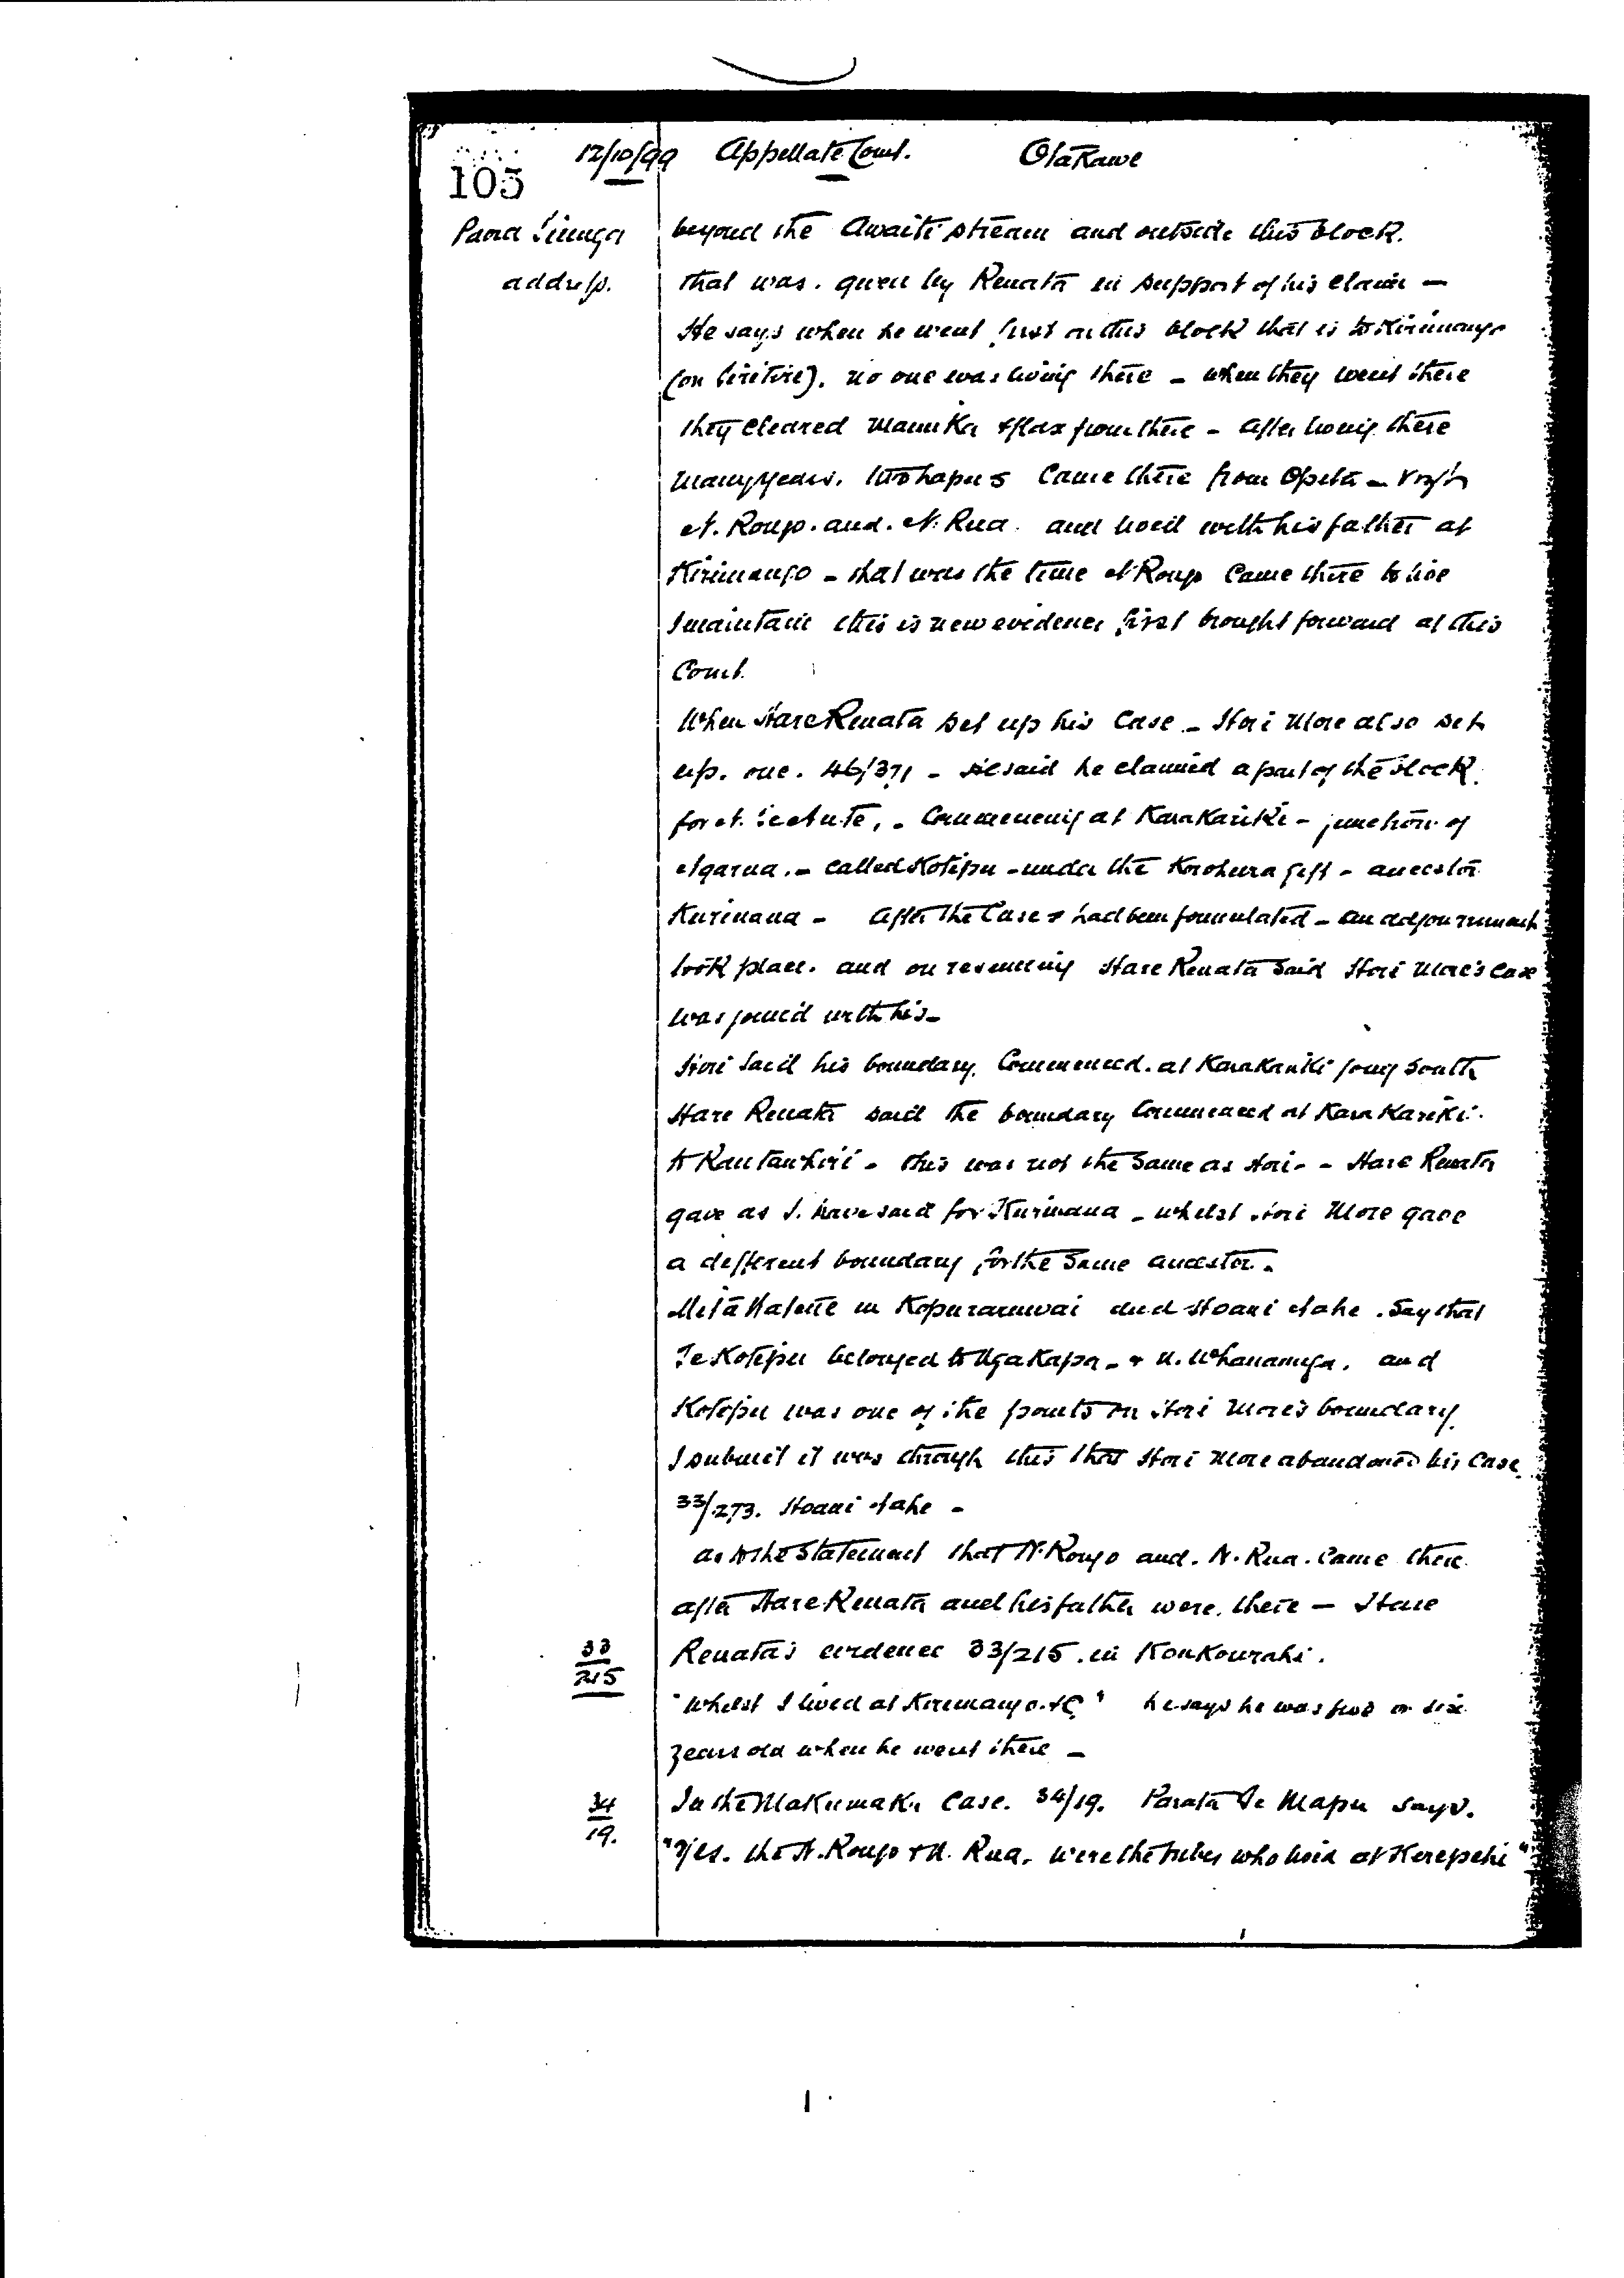 12/10/99 Appellate Court. Otakawe
105
Paora Tiunga
address.
beyond the Awaiti stream and outside this block.
that was. given by Renata in support of his claim —
He says when he went first on this block that is to Kirimango
(on Piritiri). no one was living there - when they went there
they cleared Manuka & flax from there - After living there
many years. two hapus came there from Opita -
N. Rongo. and. N. Rua. and lived with his father at
Kirimango - that was the time N Rongo came there to live
I maintain this is new evidence first brought forward at this
Court.
When Hare Renata set up his Case - Hori More also set
up. one. 46/371 - He said he claimed a part of the block
for N. - Commencing at Karakariki - junction of
Ngarua. - called Kotipu - under the Korohura gift - ancestor
Kurinana - After the Cases had been formulated - an adjournment
took place. and on resuming Hare Renata said Hori More's case
was joined with his -
Hori said his boundary. Commenced. at Karakariki going South
Hare Renata said the boundary Commenced at Karakariki.
to Rautawhiri - this was not the same as Hori - - Hare Renata
gave as I. have said for Kurinana - whilst Hori More gave
a different boundary for the same ancestor.
Mita Watene in Kopuraruwai and Hoani Nahe. Say that
Te Kotipu belonged to Ngakapa - & N. Whanaunga. and
Kotipu was one of the points on Hori More's boundary.
I submit it was through this that Hori More abandoned his Case
33/273. Hoani Nahe -
as to the statement that N. Rongo and. N. Rua. came there
after Hare Renata and his father were. there — Hare
33/215
Renata's evidence 33/215. in Koukourahi.
"Whilst I lived at Kirimango. &c" he says he was five or six
years old when he went there -
34/19.
In the Makumaku Case. 34/19. Parata Te Mapu says.
"Yes. the N. Rongo & N. Rua. were the tribes who lived at Kerepehi"